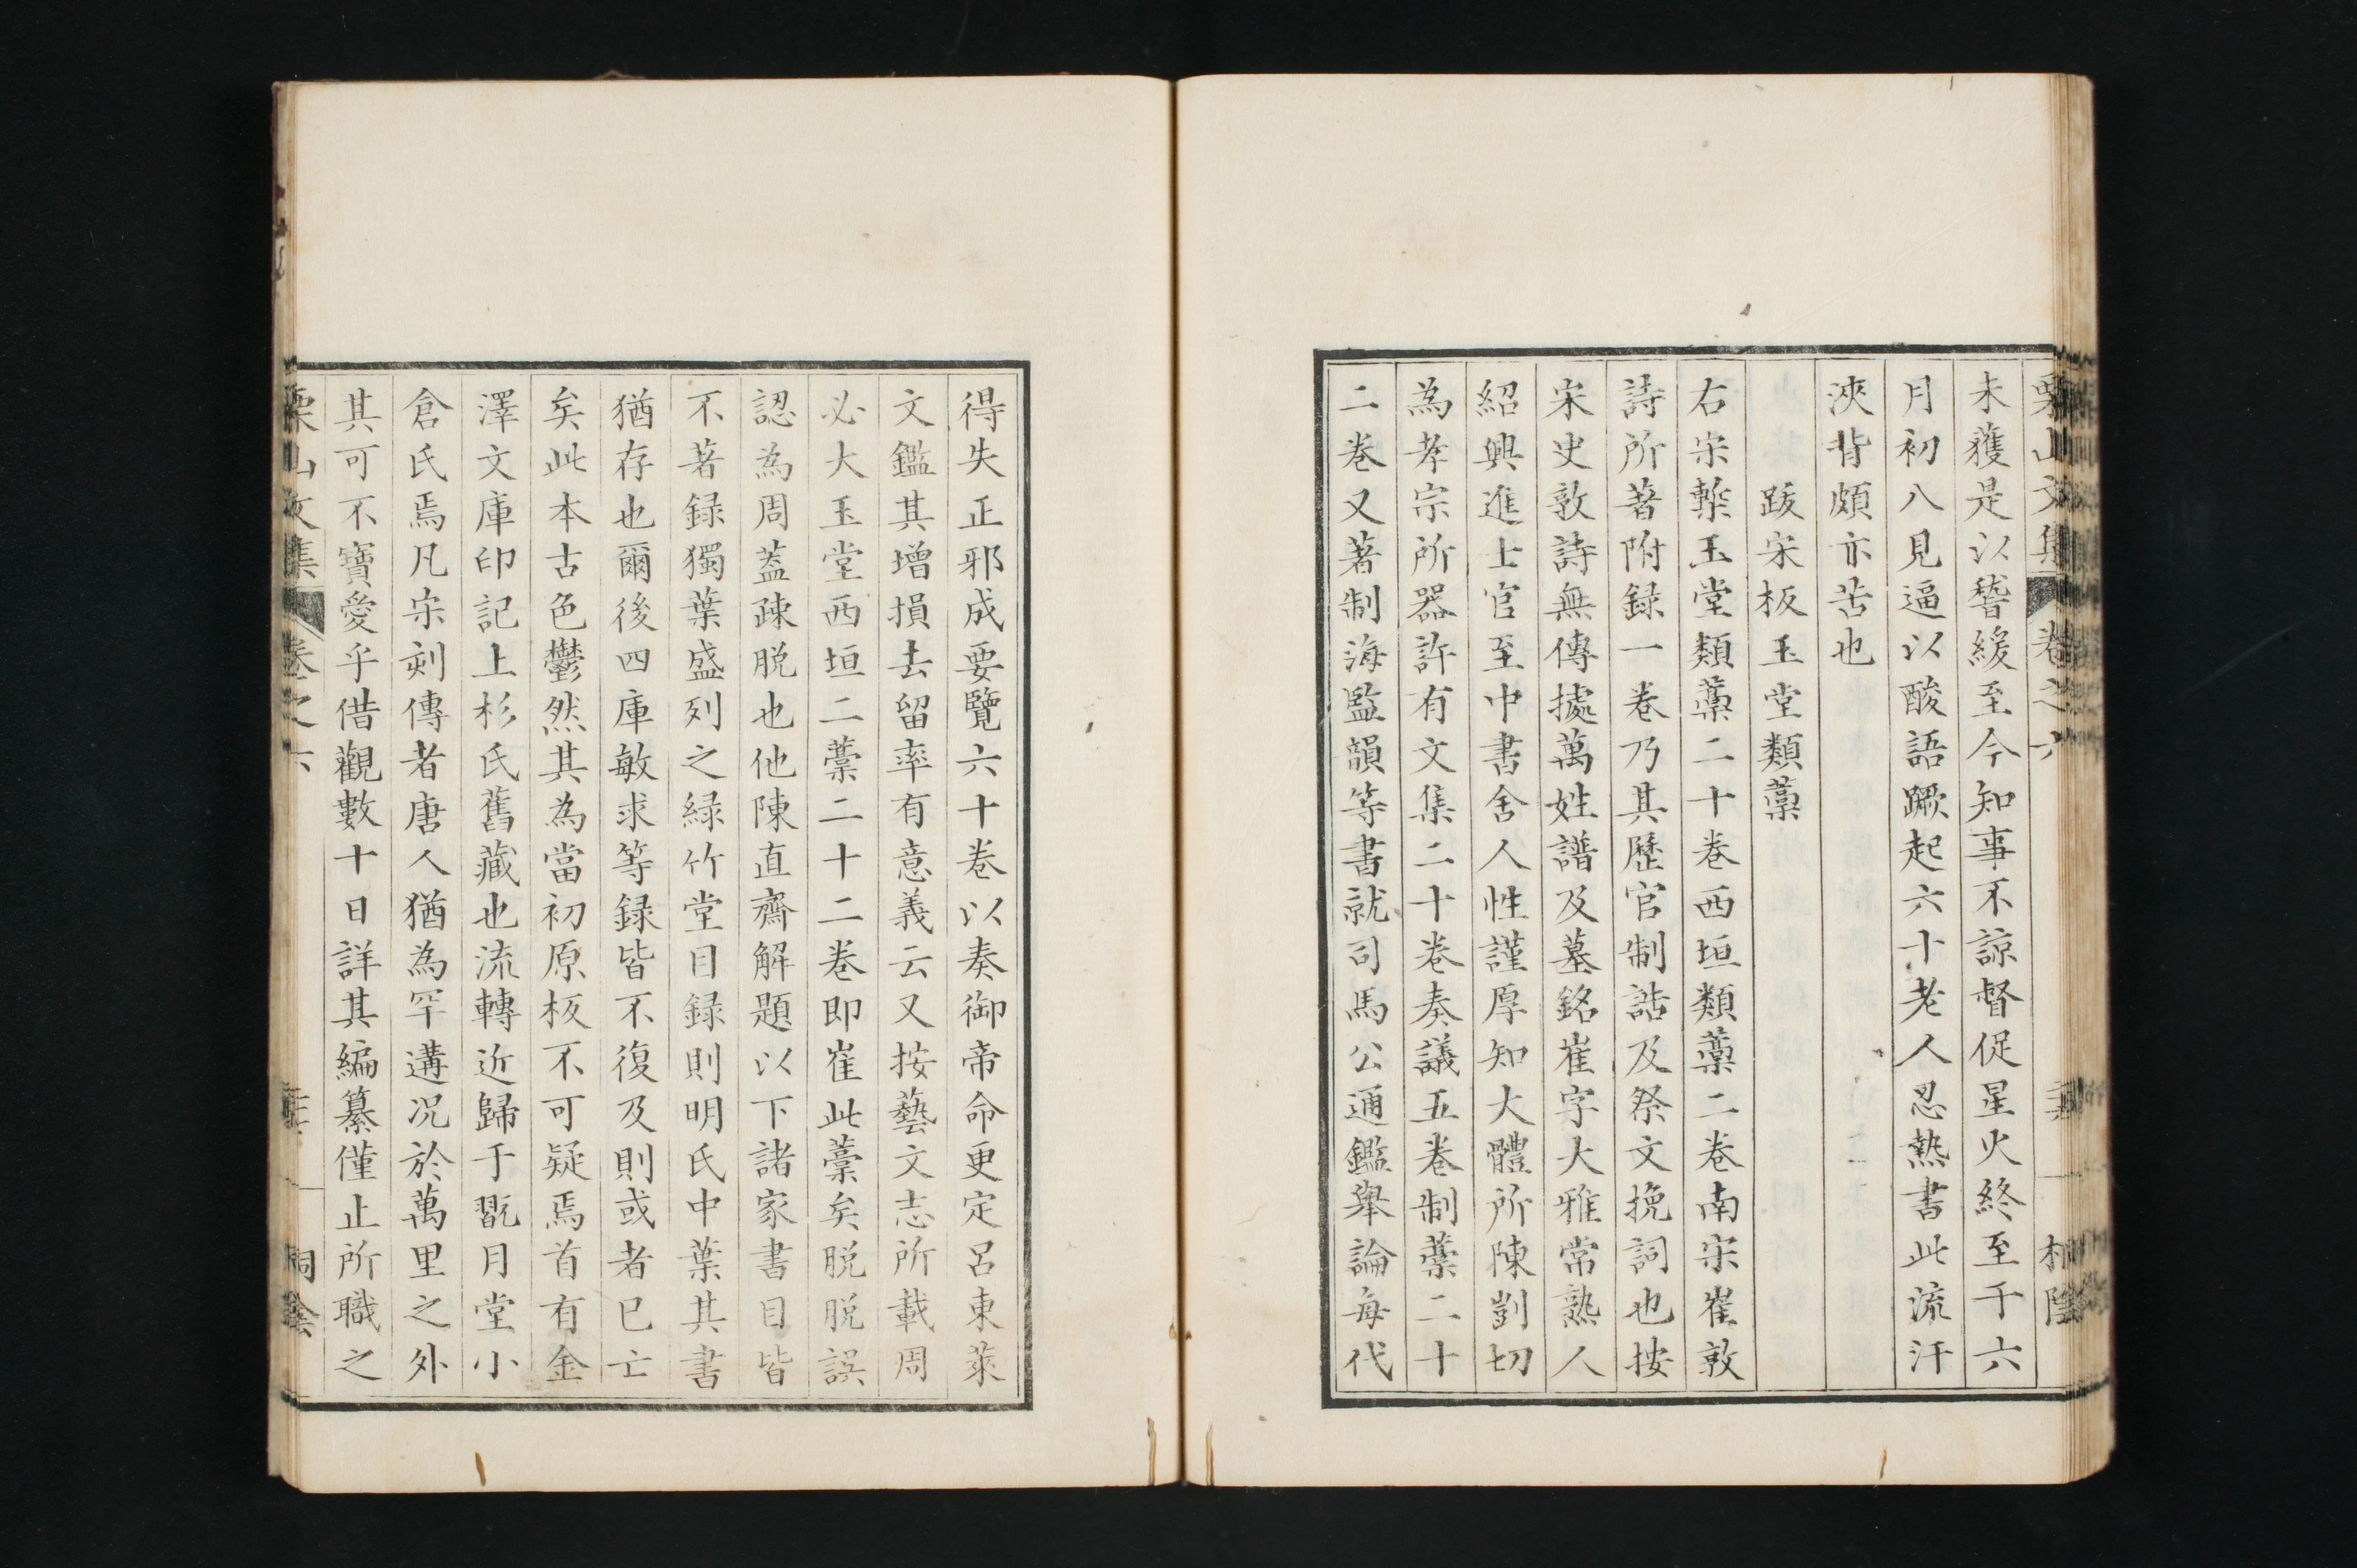 栗山文集 卷之六 桐陰
未獲是以諬緩至今知事不諒督促星火終至于六
月初八見逼以酸語蹶起六十老人忍熱書此流汗
浹背頗亦苦也
跋宋板玉堂類藁
右宋槧玉堂類藁二十卷西垣類藁二卷南宋崔敦
詩所著附録一卷乃其歷官制誥及祭文挽詞也按
宋史敦詩無傳據萬姓譜及墓銘崔字大雅常熟人
紹興進士官至中書舍人性謹厚知大體所陳剴切
為孝宗所器許有文集二十卷奏議五卷制藁二十
二卷又著制海監韻等書就司馬公通鑑舉論每代
得失正邪成要覽六十卷以奏御帝命更定呂東萊
文鑑其增損去留率有意義云又按藝文志所載周
必大玉堂西垣二藁二十二卷即崔此藁矣脱脱誤
認為周蓋疎脱也他陳直齋解題以下諸家書目皆
不著録獨葉盛列之緑竹堂目録則明氏中葉其書
猶存也爾後四庫敏求等録皆不復及則或者已亡
矣此本古色鬱然其為當初原板不可疑焉首有金
澤文庫印記上杉氏舊藏也流轉近歸于翫月堂小
倉氏焉凡宋刻傳者唐人猶為罕遘况於萬里之外
其可不寶愛乎借觀數十日詳其編纂僅止所職之
栗山文集 卷之六 桐陰